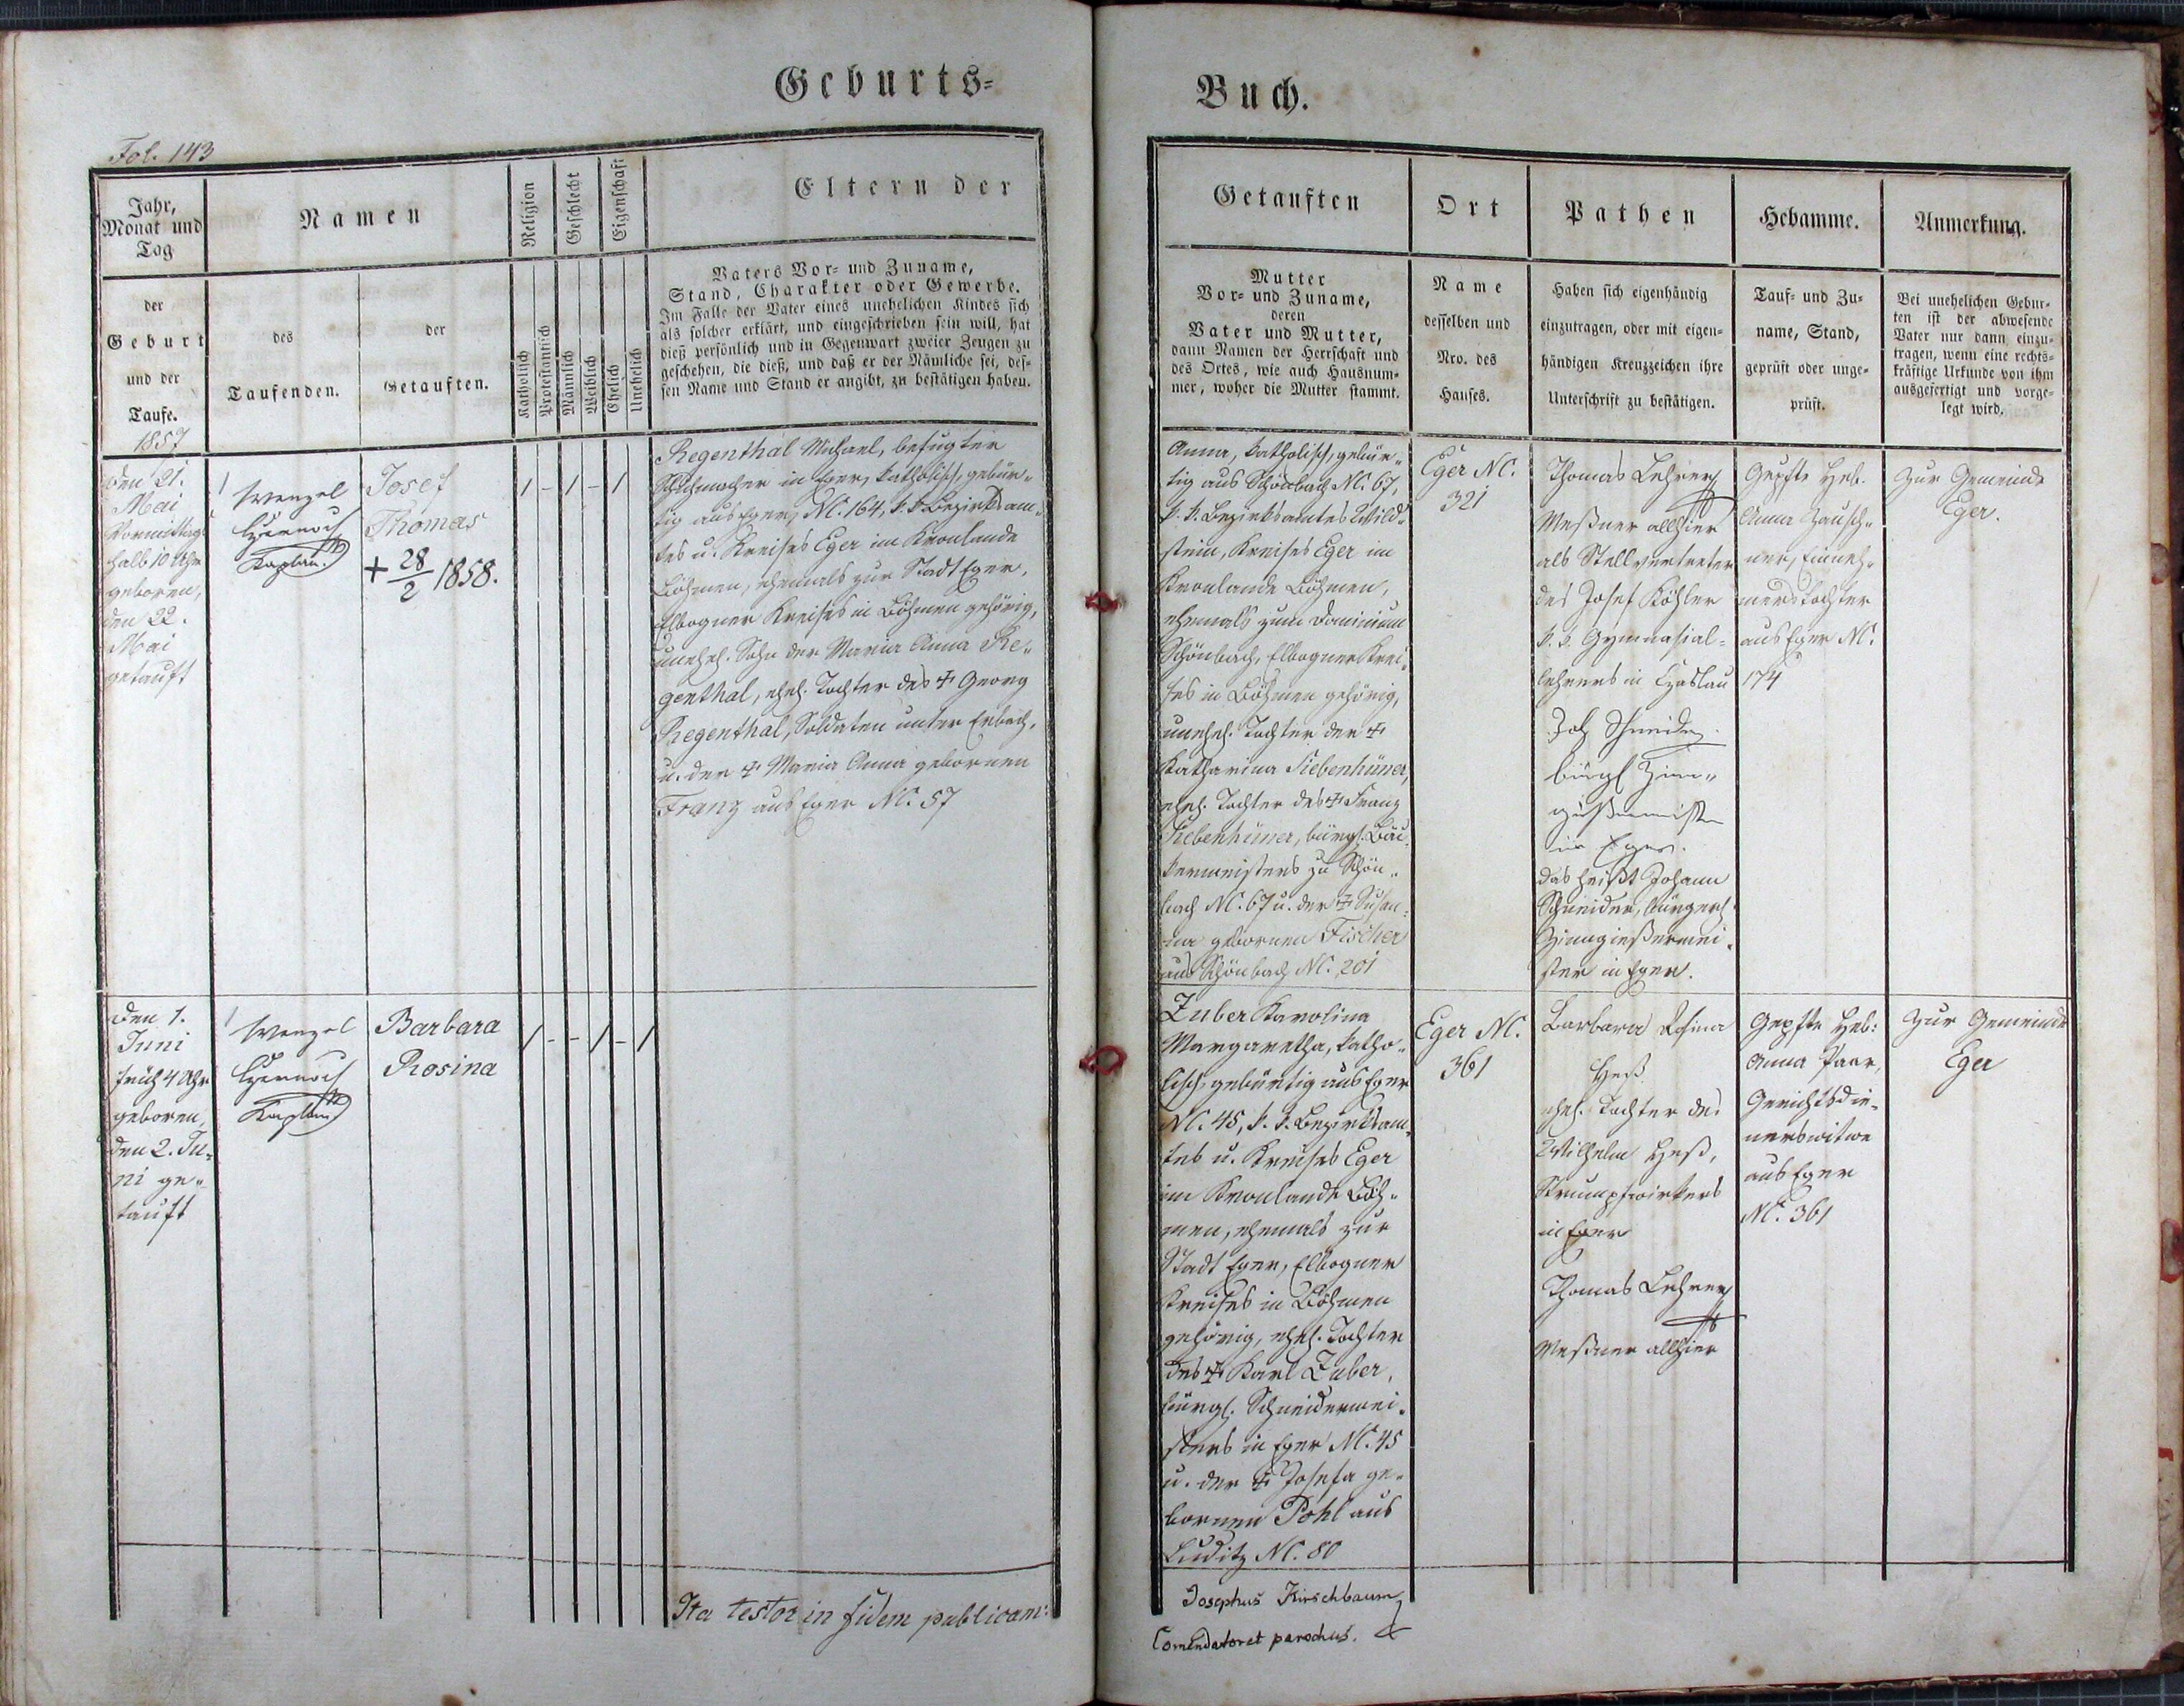 Geburts-
Buch.
Fol. 143
Jahr,
Monat und
Tag
der
Geburt
und der
Taufe.
1857
Namen
des
Taufenden.
der
Getauften.
Religion
Katholisch
Protestantisch
Geschlecht
Männlich
Weiblich
Eigenschaft
Ehelich
Unehelich
Eltern der
Vaters Vor- und Zuname,
Stand, Charakter oder Gewerbe.
Im Falle der Vater eines unehelichen Kindes sich
als solcher erklärt, und eingeschrieben sein will, hat
dieß persönlich und in Gegenwart zweier Zeugen zu
geschehen, die dieß, und daß er der Nämliche sei, des-
sen Name und Stand er angibt, zu bestätigen haben.
Getauften
Mutter
Vor- und Zuname,
deren
Vater und Mutter,
dann Namen der Herrschaft und
des Ortes, wie auch Hausnum-
mer, woher die Mutter stammt.
Ort
Name
desselben und
Nro. des
Hauses.
Pathen
Haben sich eigenhändig
einzutragen, oder mit eigen-
händigen Kreuzzeichen ihre
Unterschrift zu bestätigen.
Hebamme.
Tauf- und Zu-
name, Stand,
geprüft oder unge-
prüft.
Anmerkung.
Bei unehelichen Gebur-
ten ist der abwesende
Vater nur dann einzu-
tragen, wenn eine rechts-
kräftige Urkunde von ihm
ausgefertigt und vorge-
legt wird.
den 21.
Mai
Vormittags
halb 10 Uhr
geboren,
den 22.
Mai
getauft
Wenzel
Czernoch
Kaplan.
Josef
Thomas
+ 28/2 1858.
/ - / - /
Regenthal Michael, befugter
Schuhmacher in Eger, katholisch, gebür-
tig aus Eger, NC. 164, k. k. Bezirksam-
tes u. Kreises Eger im Kronlande
Böhmen, ehemals zur Stadt Eger,
Elbogner Kreises in Böhmen gehörig,
unehel. Sohn der Maria Anna Re-
genthal, ehel. Tochter des + Georg
Regenthal, Soldaten unter Erbach,
u. der + Maria Anna gebornen
Franz aus Eger NC. 57
Anna, katholisch, gebür-
tig aus Schönbach NC. 67,
k. k. Bezirksamtes Wild-
stein, Kreises Eger im
Kronlande Böhmen,
ehemals zum Dominium
Schönbach, Elbogner Krei-
ses in Böhmen gehörig,
unehel. Tochter der +
Katharina Siebenhüner,
ehel. Tochter des + Franz
Siebenhüner, bürgl. Bäc-
kermeisters zu Schön-
bach NC. 67 u. der + Susan-
na gebornen Fischer
aus Schönbach NC. 201
Eger NC.
321
Thomas Lehrer
Meßner allhier
als Stellvertreter
des Josef Köhler
k. k. Gymnasial-
lehrers in Czaslau
Joh Schneider
bürgl Zinn-
gießermeister
in Eger.
das heißt Johann
Schneider, bürgerl.
Zinngießermei-
ster in Eger.
Geprfte Heb.
Anna
ner, Einneh-
merstochter
aus Eger NC.
174
Zur Gemeinde
Eger.
den 1.
Juni
früh 4 Uhr
geboren,
den 2. Ju-
ni ge-
tauft
Wenzel
Czernoch
Kaplan
Barbara
Rosina
/ - - / - /
Zuber Karolina
Margaretha, katho-
lisch, gebürtig aus Eger
NC. 45, k. k. Bezirksam-
tes u. Kreises Eger
im Kronlande Böh-
men, ehemals zur
Stadt Eger, Elbogner
Kreises in Böhmen
gehörig, ehel. Tochter
des + Karl Zuber,
bürgl. Schneidermei-
sters in Eger NC. 45
u. der + Josefa ge-
bornen Pohl aus
Luditz NC. 80
Eger NC.
361
Barbara Rosina
Heß
ehel. Tochter des
Wilhelm Heß,
Strumpfwirkers
in Eger
Thomas Lehrer
Meßner allhier
Geprfte Heb:
Anna Paar,
Gerichtsdie-
nerswitwe
aus Eger
NC. 361
Zur Gemeinde
Eger
Ita testor in fidem publicam:
Josephus Kirschbaum
Comendator et parochus.